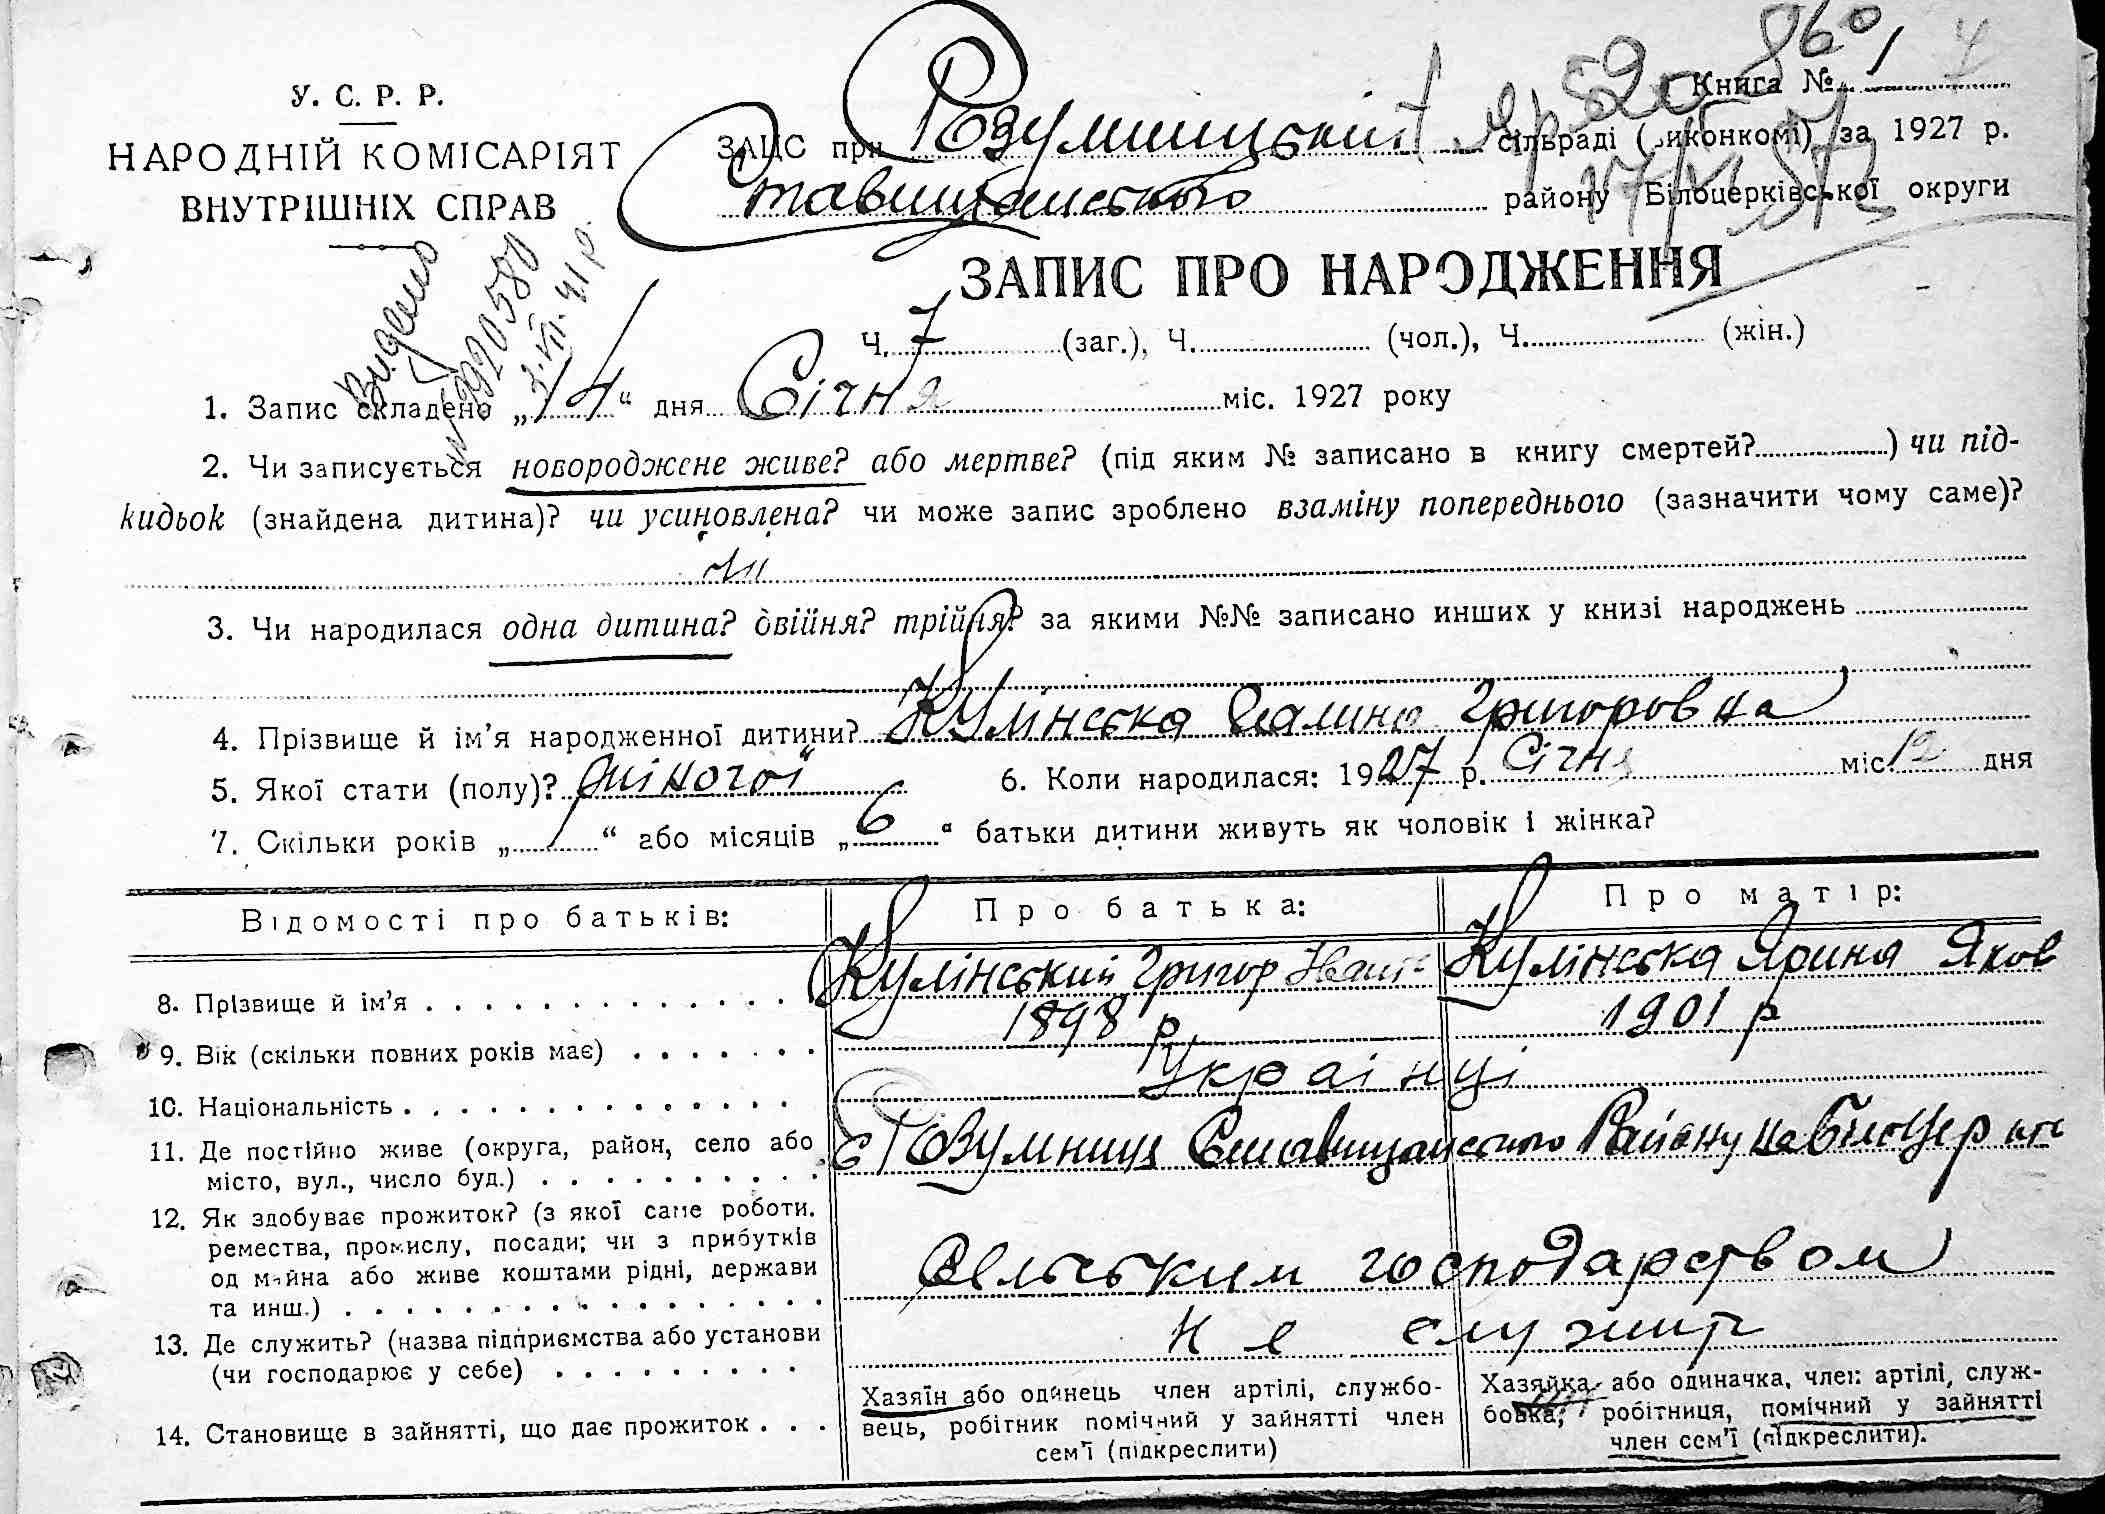 У. С. Р. Р.
НАРОДНІЙ КОМІСАРІЯТ
ВНУТРІШНІХ СПРАВ
Книга № 1
ЗАЦС при Розумницькій сільраді (виконкомі) за 1927 р.
Ставищанського району Білоцерківської округи
Видано
№ 9920580
3.VII.41 р.
ЗАПИС ПРО НАРОДЖЕННЯ
Ч. 7 (заг.), Ч. (чол.), Ч. (жін.)
1. Запис складено „14“ дня Січня міс. 1927 року
2. Чи записується новороджене живе? або мертве? (під яким № записано в книгу смертей? ) чи під-
кидьок (знайдена дитина)? чи усиновлена? чи може запис зроблено взаміну попереднього (зазначити чому саме)?
ні
3. Чи народилася одна дитина? двійня? трійня? за якими №№ записано инших у книзі народжень
4. Прізвище й ім’я народженної дитини? Кулінська Галина Григоровна
5. Якої стати (полу)? жіночої 6. Коли народилася: 1927 р. Січня міс. 12 дня
7. Скільки років „ “ або місяців „6“ батьки дитини живуть як чоловік і жінка?
Відомості про батьків: Про батька: Про матір:
8. Прізвище й ім’я Кулінський Григор Іван Кулінська Ярина Яков
9. Вік (скільки повних років має) 1898 р 1901 р
10. Національність Украінці
11. Де постійно живе (округа, район, село або
місто, вул., число буд.) с Розумниця Ставищанського Району на Білоцерк
12. Як здобуває прожиток? (з якої саме роботи,
ремества, промислу, посади; чи з прибутків
од майна або живе коштами рідні, держави
та инш.) Сельським господарством
13. Де служить? (назва підприємства або установи
(чи господарює у себе) не служить
14. Становище в зайнятті, що дає прожиток
Хазяїн або одинець член артілі, службо-
вець, робітник помічний у зайнятті член
сем’ї (підкреслити)
Хазяйка або одиначка, член артілі, служ-
бовка, робітниця, помічний у зайнятті
член сем’ї (підкреслити).